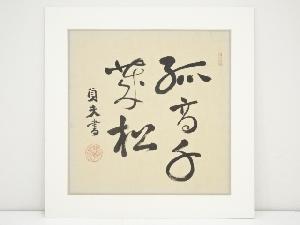 孤高千
葉松
貞夫書